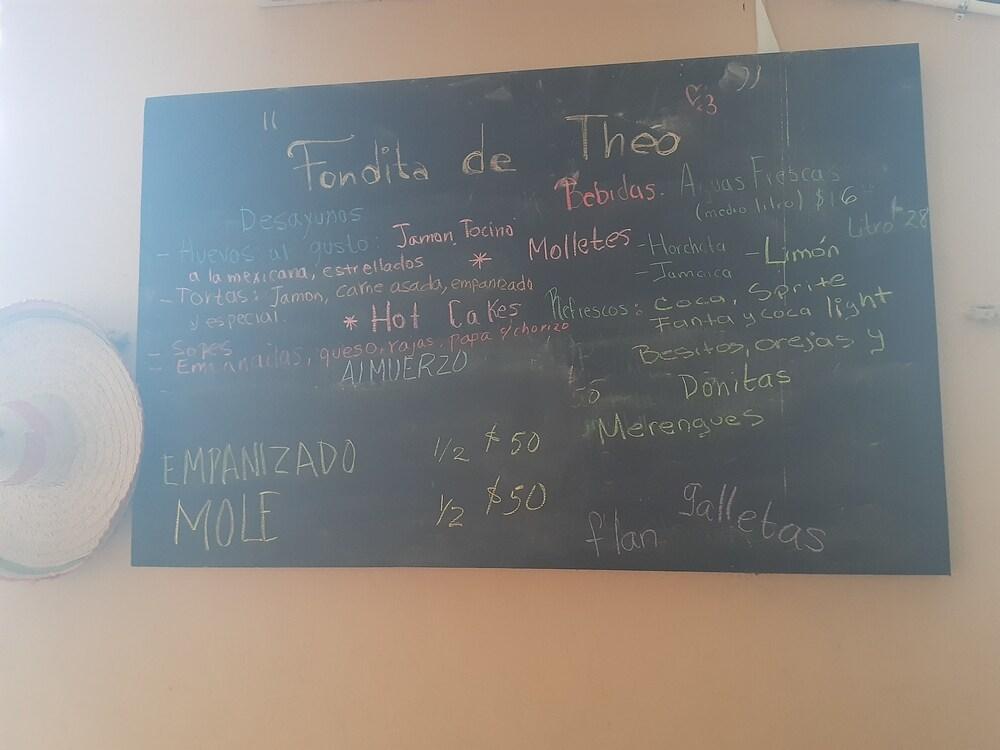 " Fondita de Theo "
<3
Desayunos
- Huevos al gusto: Jamon, Tocino
a la mexicana, estrellados
- Tortas: Jamon, carne asada, empanizado
y especial.
* Molletes
* Hot Cakes
- Sopes
- Empanadas, queso, rajas, papa c/chorizo
AlMUERZO
EMPANIZADO 1/2 $50
MOLE 1/2 $50
Bebidas. Aguas Frescas
(medio litro) $16
Litro 28
- Horchata - Limón
- Jamaica
Refrescos: Coca, Sprite
Fanta y coca light
Besitos, orejas y
Donitas
Merengues
galletas
flan